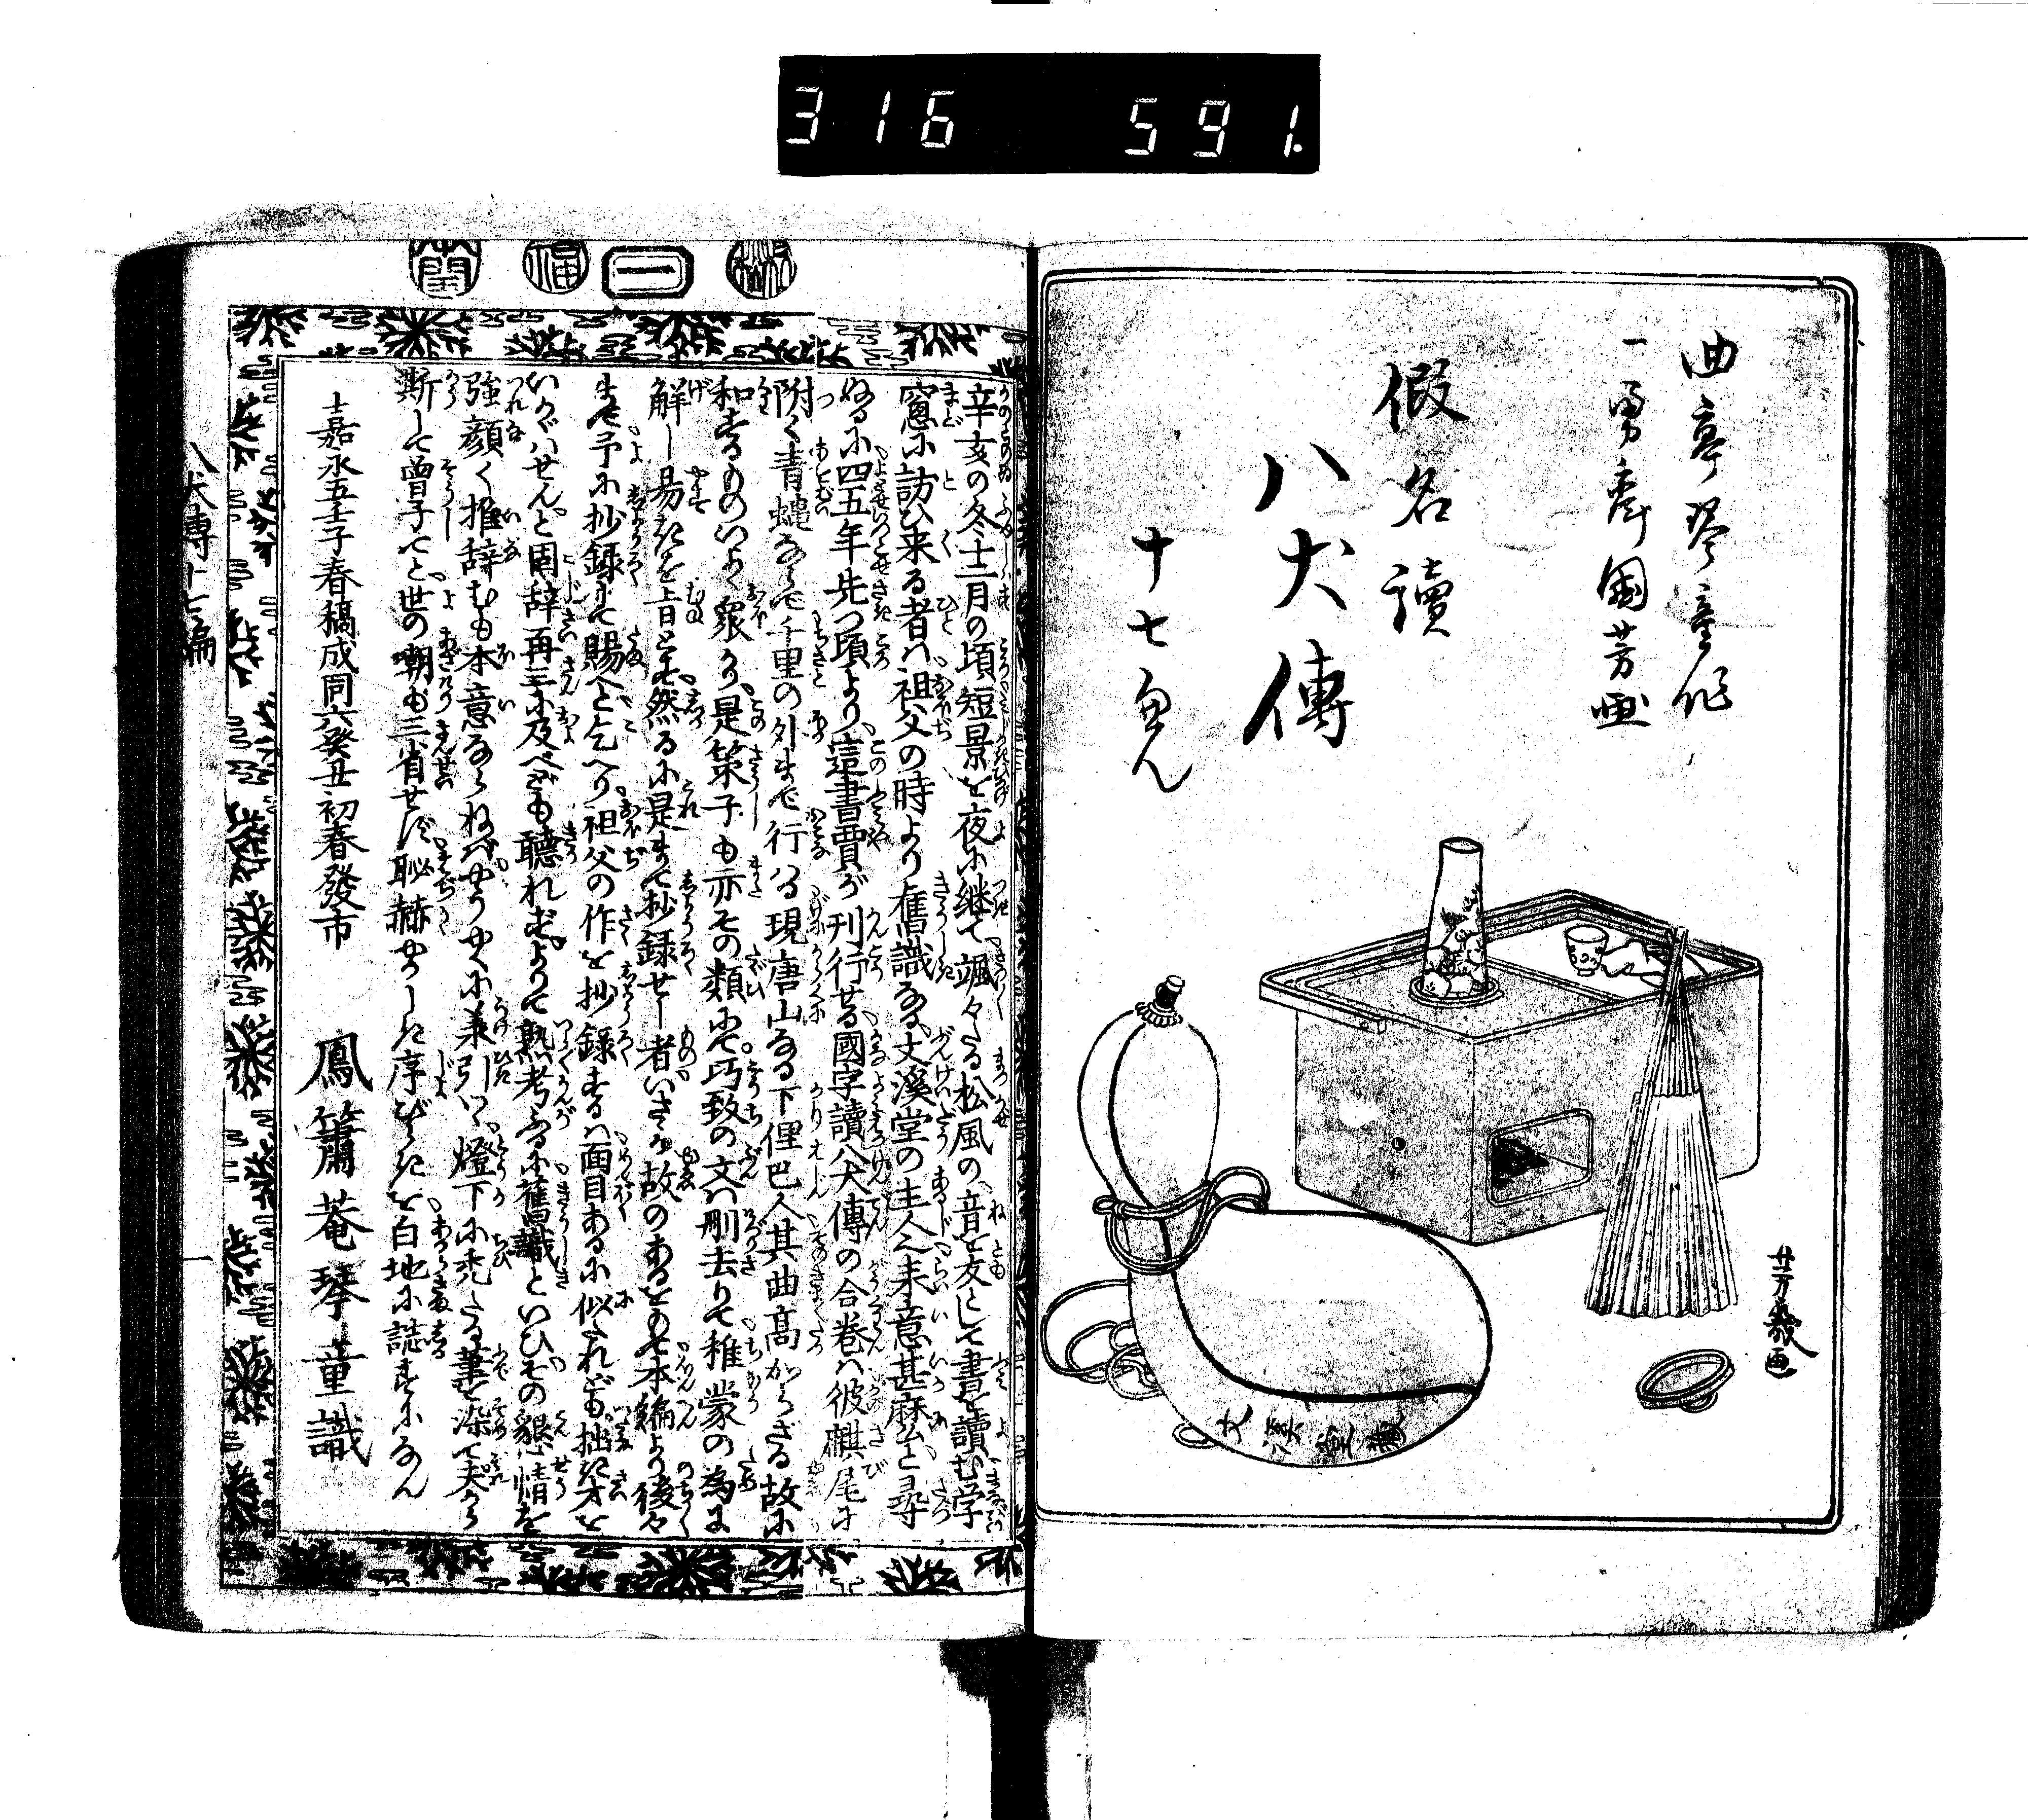 316 591.
曲亭琴童作
一勇齋國芳画
假名讀
八犬傳
十七へん
芳幾画
文溪堂藏
一
辛亥の冬十二月の頃短景を夜に継て颯々たる松風の音を友として書を讀む学
窓に訪ひ来る者は祖父の時より舊識なる文溪堂の主人也来意甚麼と尋
ぬるに四五年先つ頃より這書賈が刊行せる國字讀八犬傳の合巻は彼麒尾に
附く青蝿ならで千里の外まで行はる現唐山なる下俚巴人其曲高からざる故に
和するものいよ〱衆かり是策子も亦その類にて巧致の文は刪去りて稚蒙の為に
解し易きを旨とす然るに是まで抄録せし者いさゝか故のあるをもて本編より後々
まで予に抄録して賜へと乞へり祖父の作を抄録するは面目あるに似たれども拙き才を
いかゞはせんと固辞再三に及べども聴れずよりて熟考ふるに舊識といひその懇情を
強顔く推辞むも本意ならねばやうやくに兼引つ燈下に禿たる筆を染て夫から
斯して曽子てと世の嘲も三省せず耻赫やかしき序びらきを白地に誌すになん
嘉永五壬子春稿成同六癸丑初春發市
鳳簫菴琴童識
八犬傳十七編